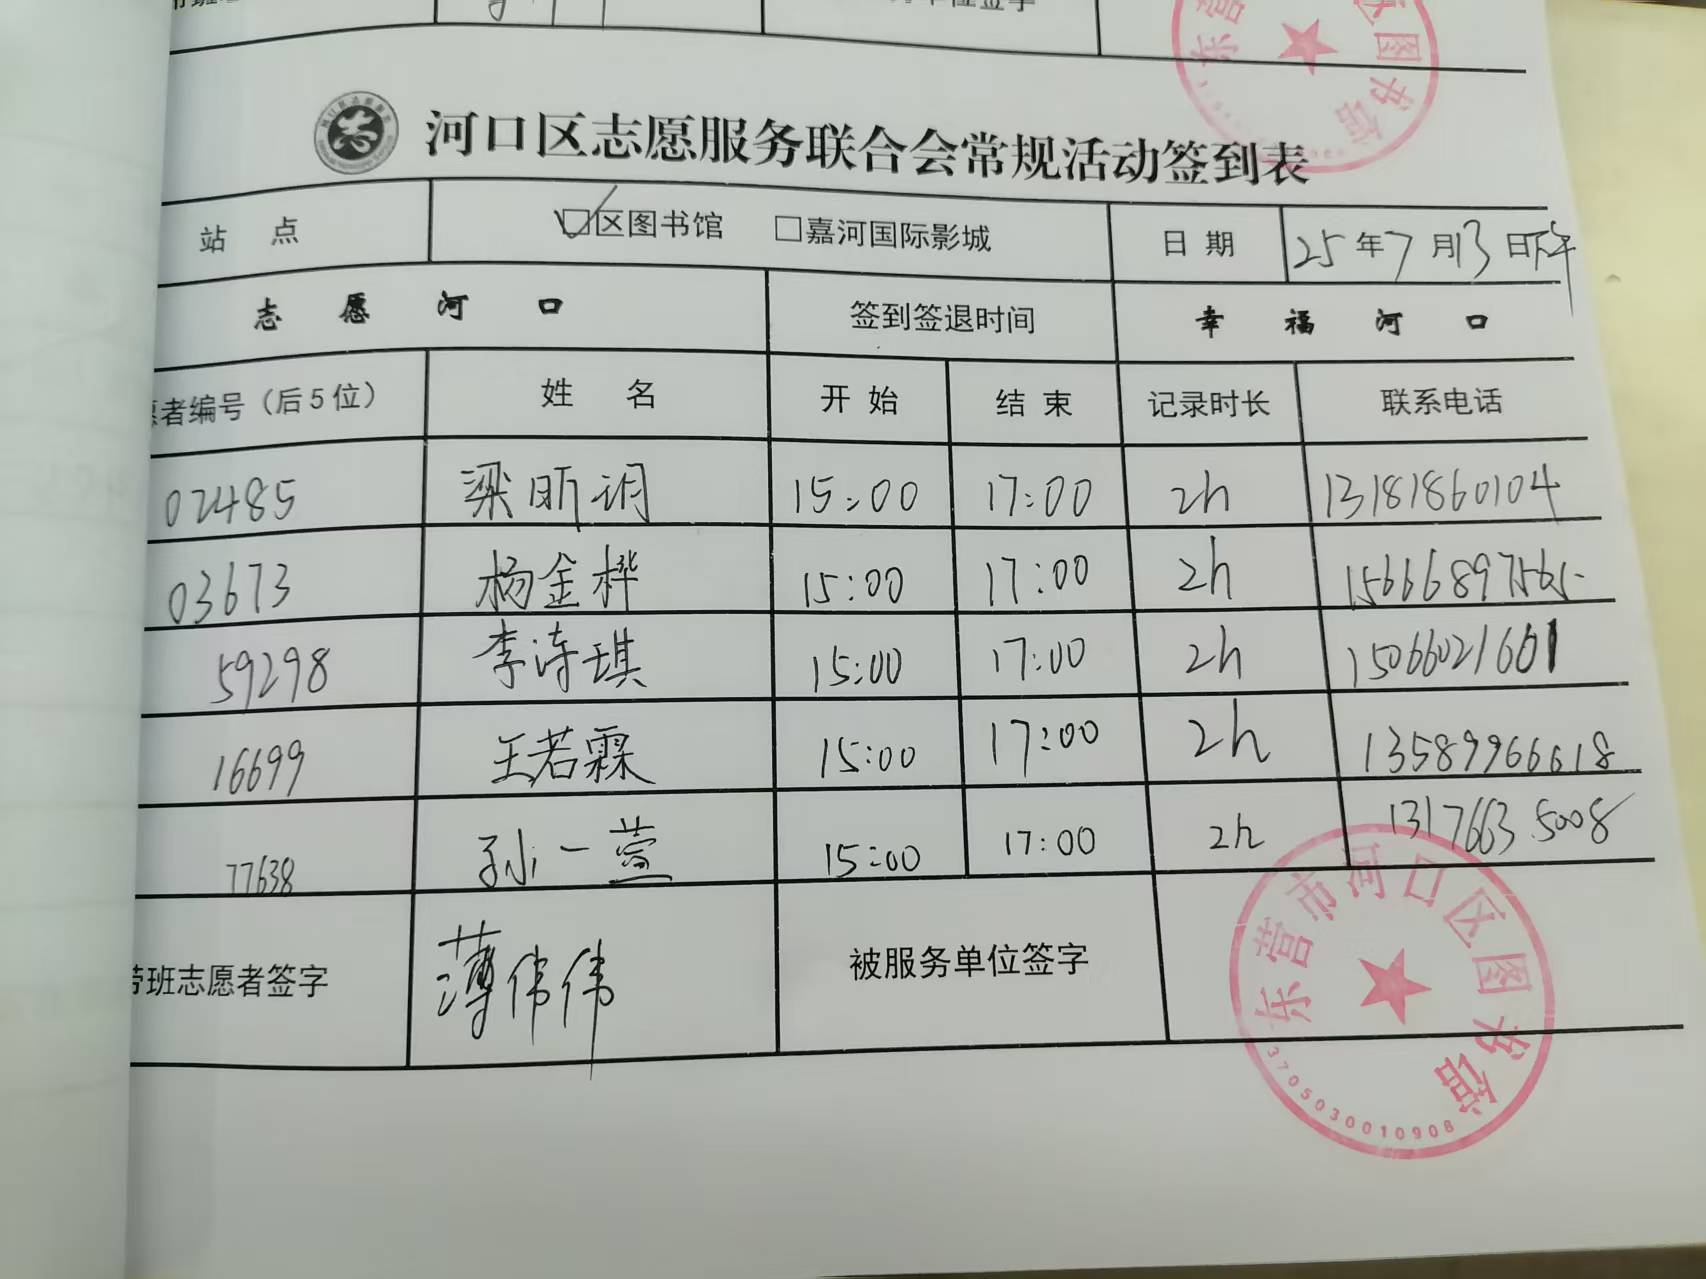 河口区志愿服务联合会常规活动签到表
站 点 区图书馆 嘉河国际影城 日 期 25年7月13日下午
志 愿 河 口 签到签退时间 幸 福 河 口
愿者编号（后5位） 姓 名 开 始 结 束 记录时长 联系电话
02485 梁昕玥 15:00 17:00 2h 13181860104
03673 杨金桦 15:00 17:00 2h
59298 李诗琪 15:00 17:00 2h 15066021661
16699 王若霖 15:00 17:00 2h 13589966618
77638 孙一萱 15:00 17:00 2h 13176635008
带班志愿者签字 薄伟伟 被服务单位签字
东营市河口区图书馆
3705030010908